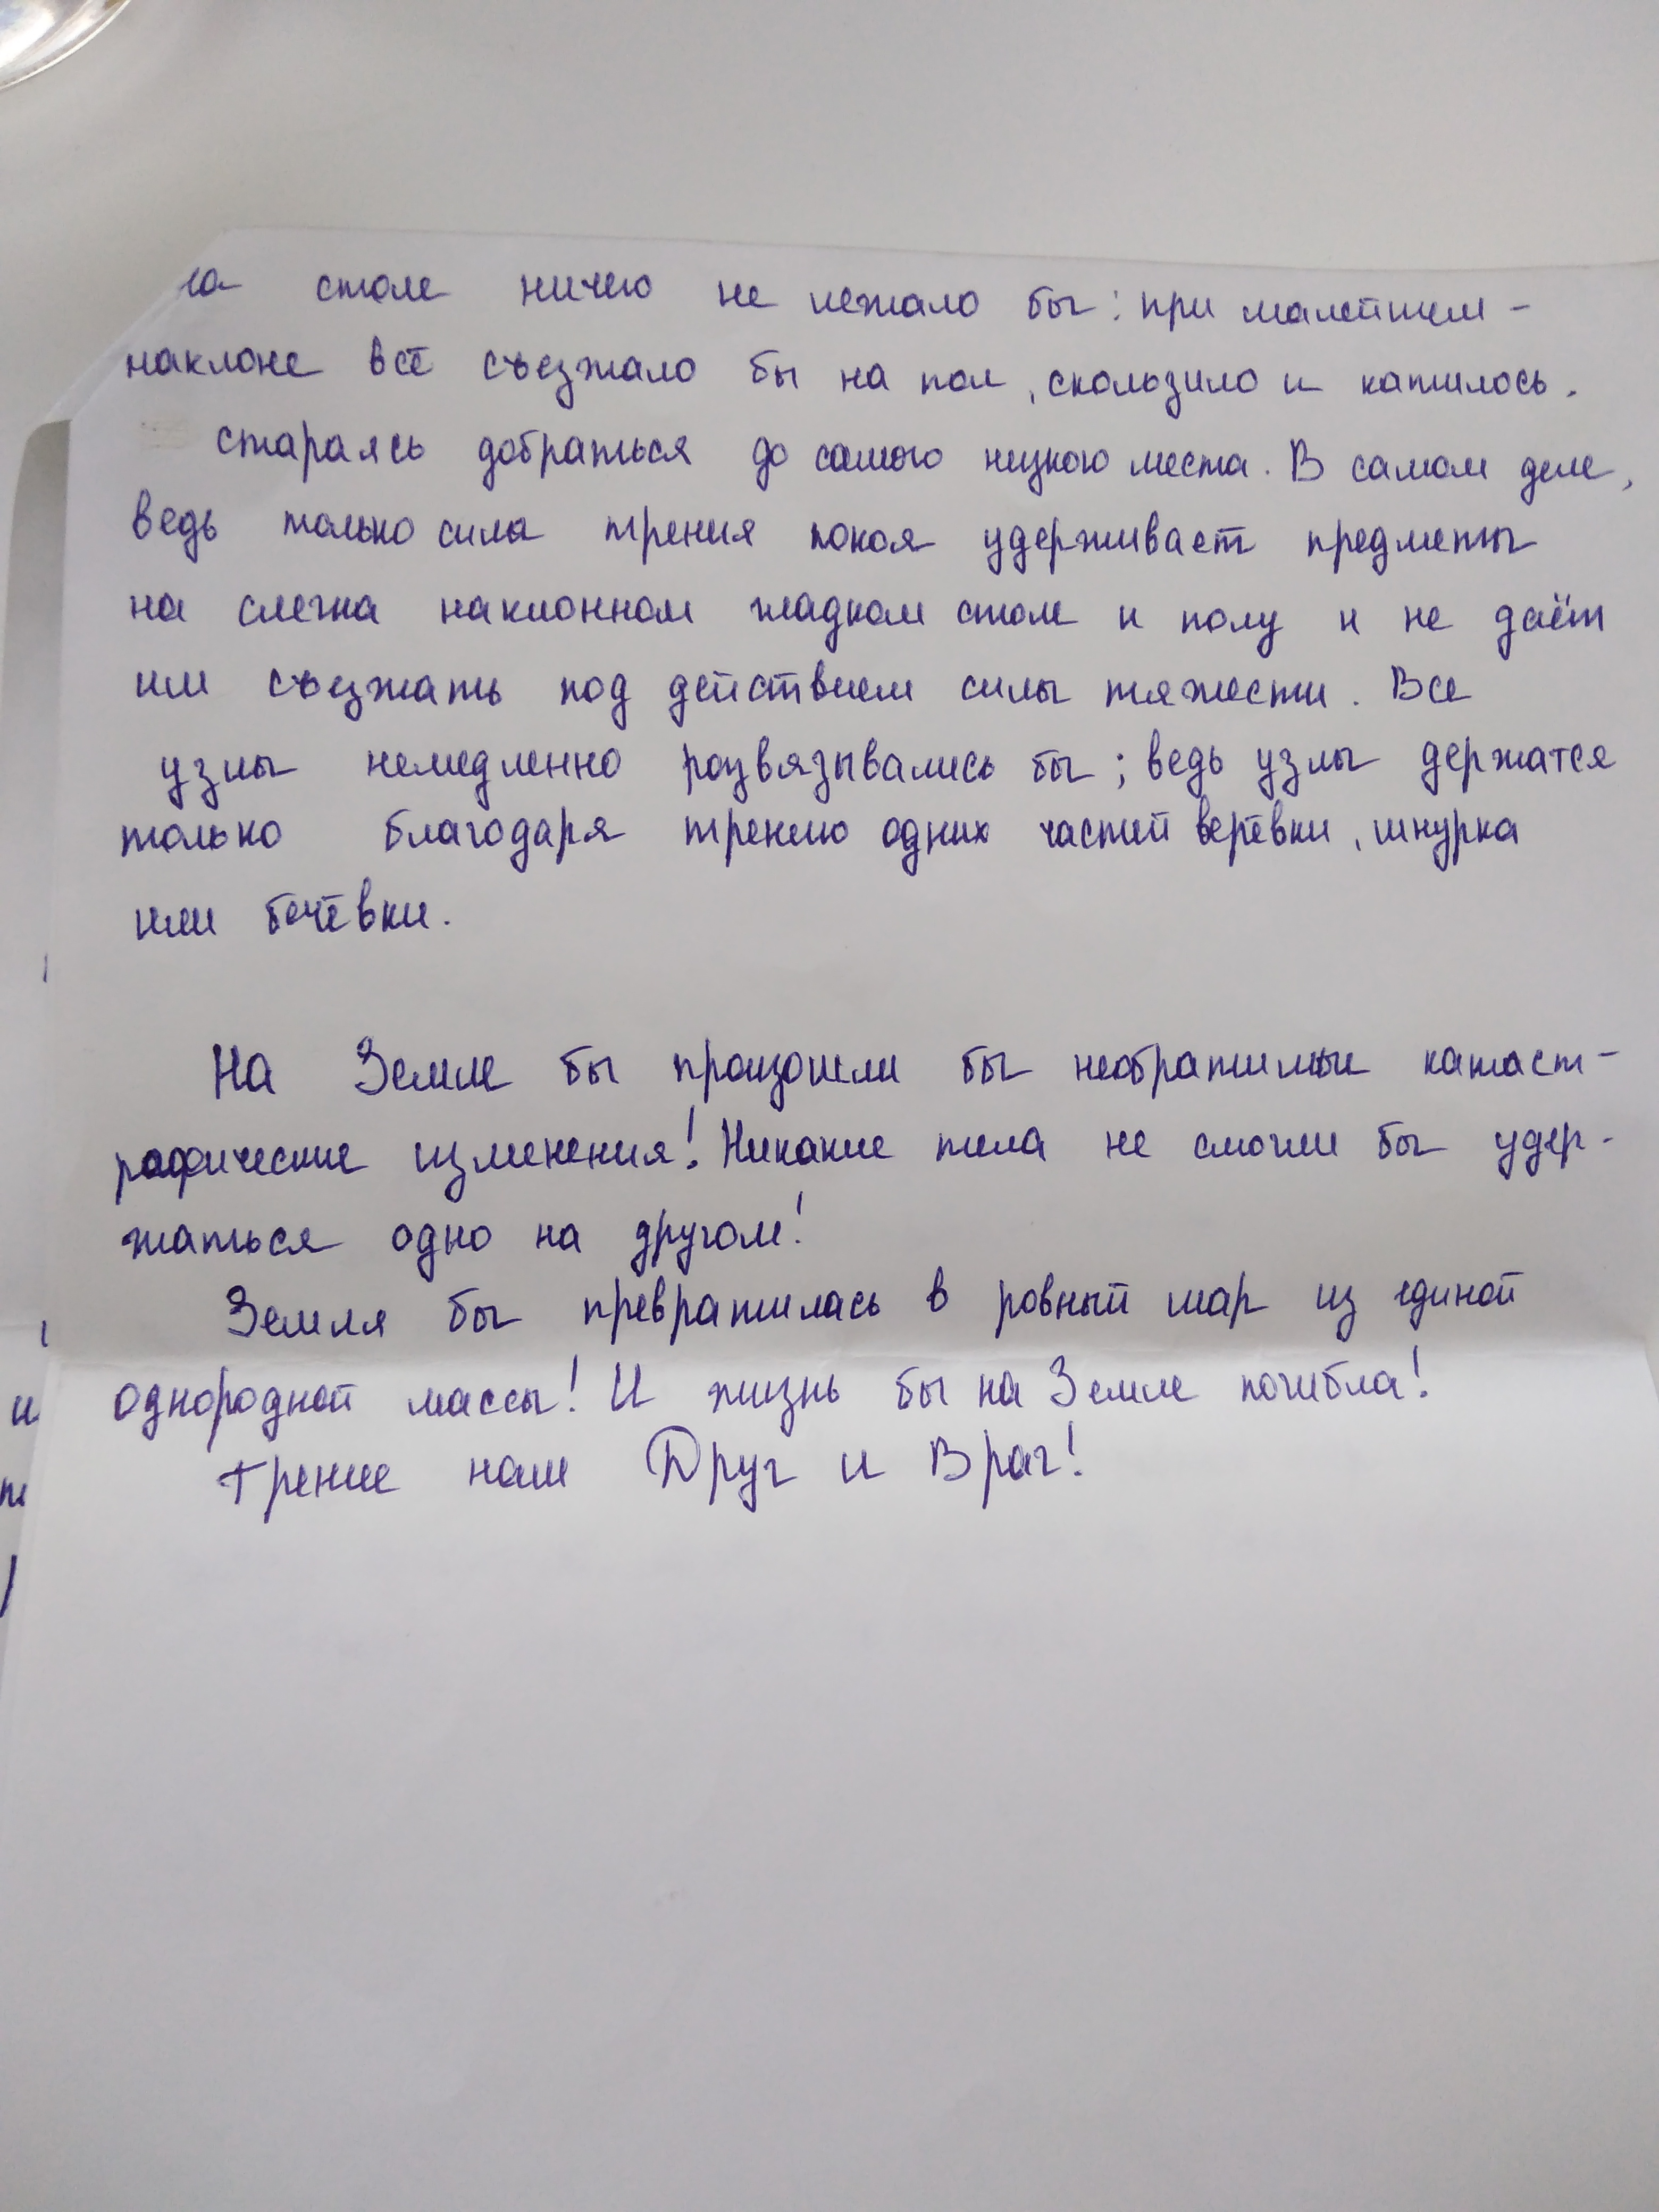 на столе ничего не лежало бы: при малейшем -
наклоне всё съезжало бы на пол, скользило и катилось.
стараясь добраться до самого низкого места. В самом деле,
ведь только сила трения покоя удерживает предметы
на слегка наклонном гладком столе и полу и не даёт
им съезжать под действием силы тяжести. Все
узлы немедленно развязывались бы; ведь узлы держатся
только благодаря трению одних частей верёвки, шнурка
или бечёвки.
На Земле бы произошли бы необратимые катаст-
рофические изменения! Никакие тела не смогли бы удер-
жаться одно на другом!
Земля бы превратилась в ровный шар из единой
однородной массы! И жизнь бы на Земле погибла!
Трение наш Друг и Враг!